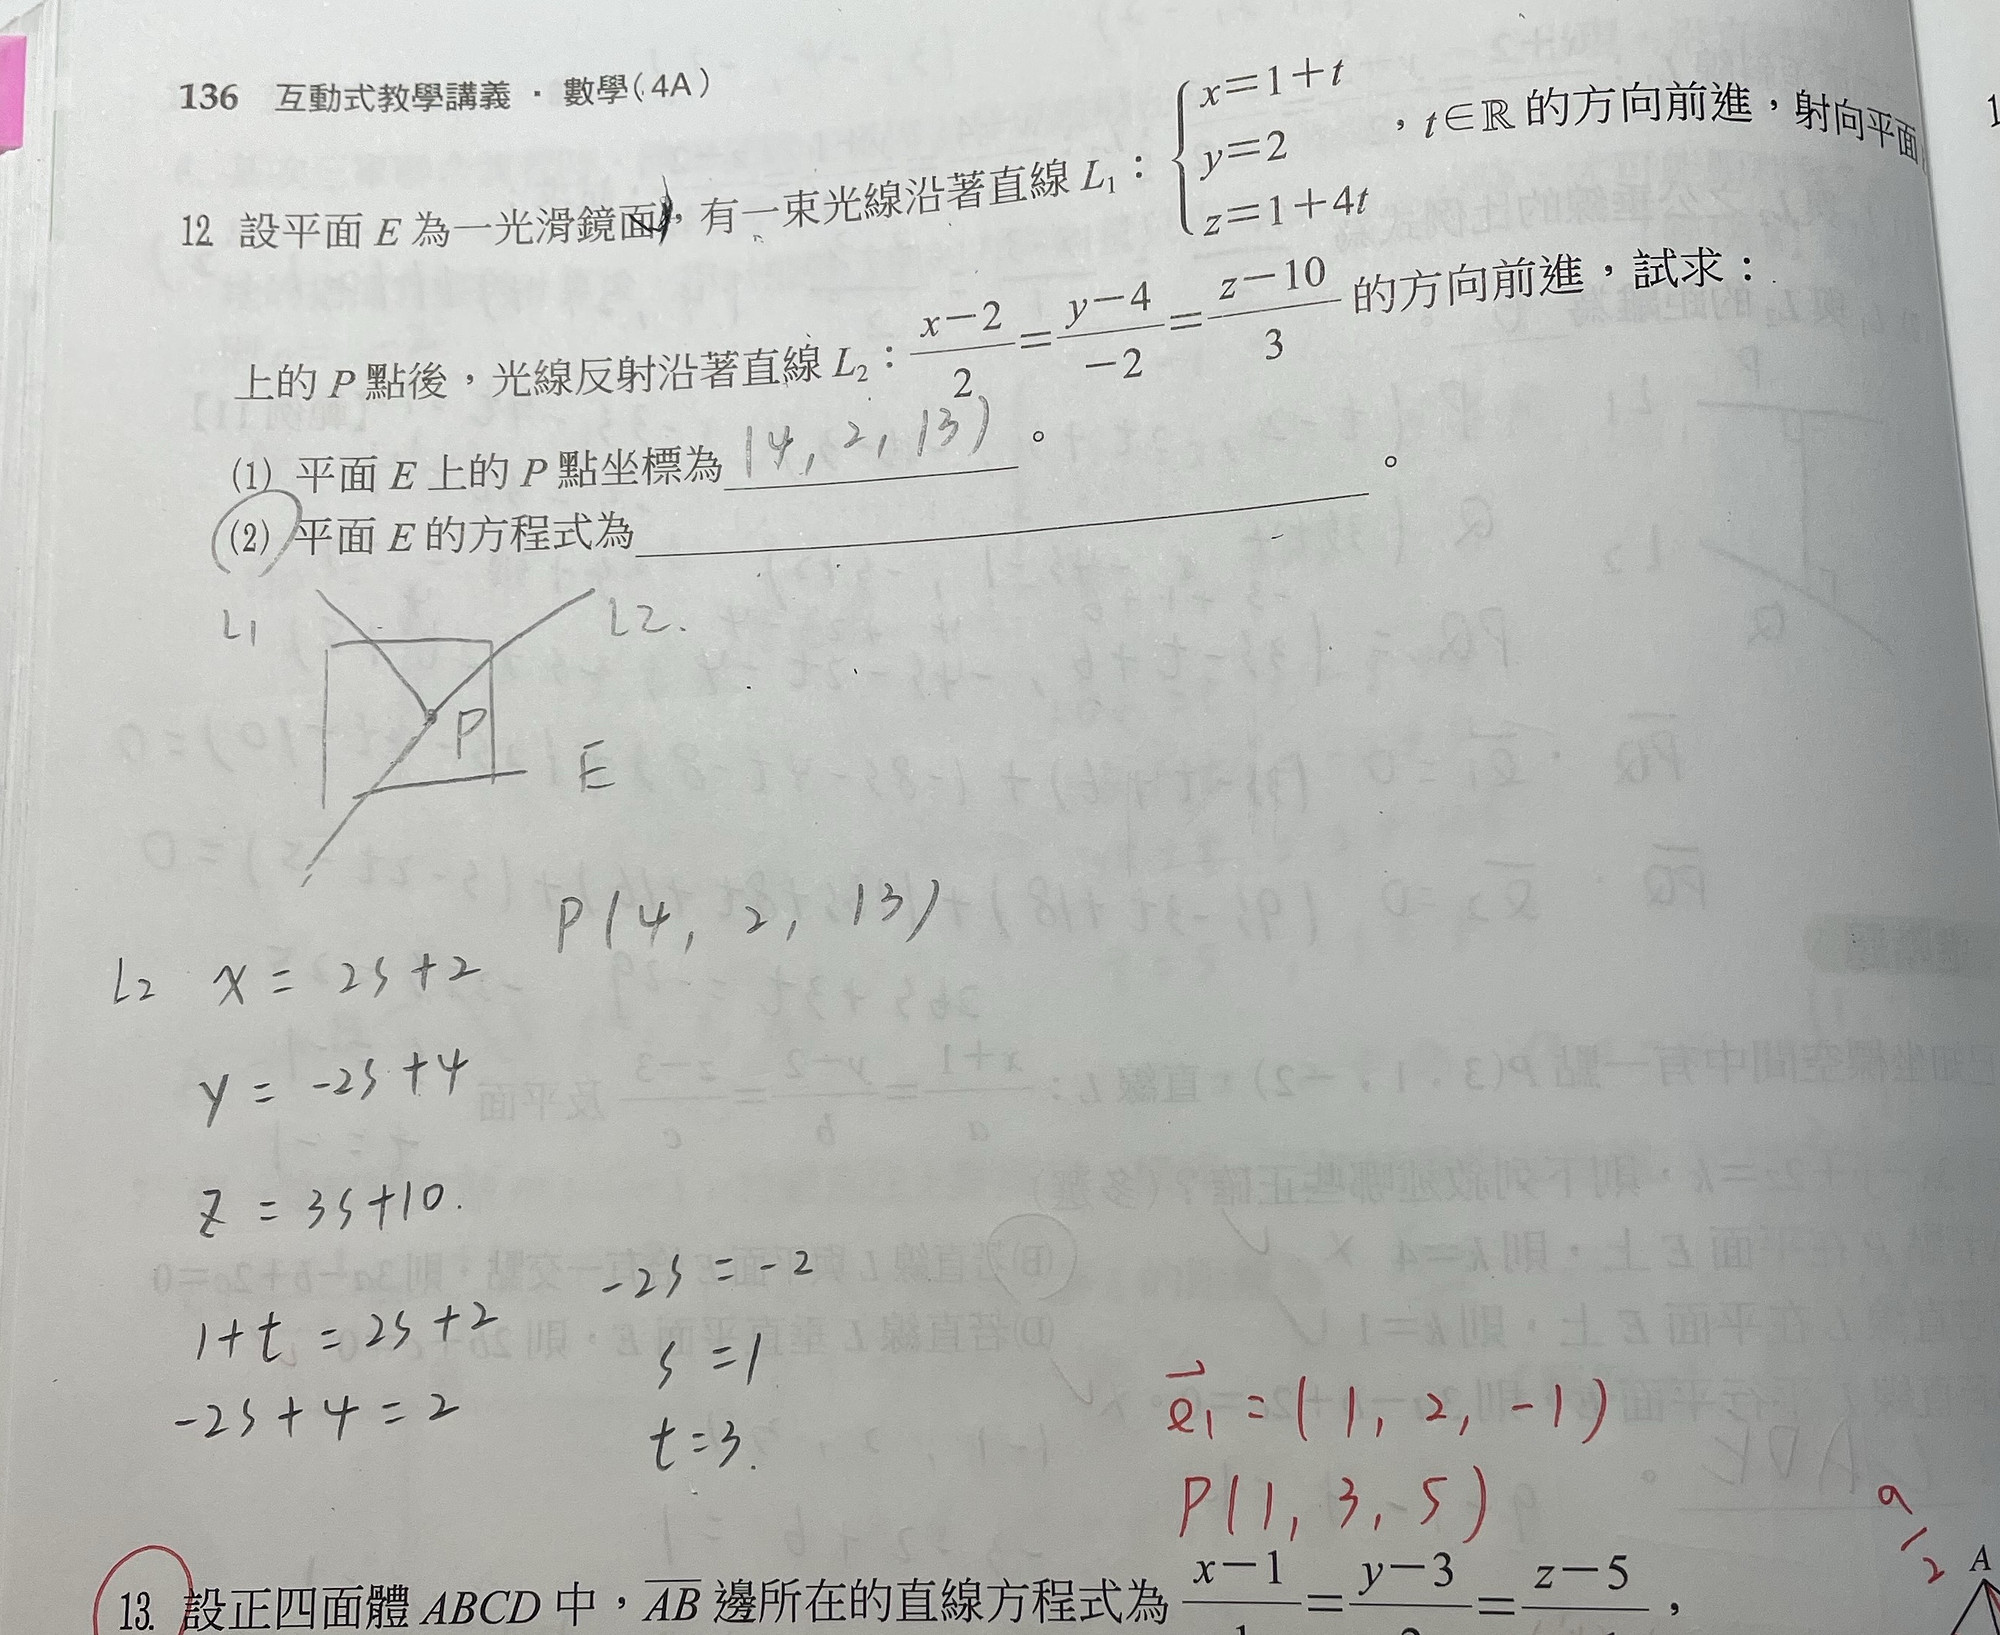 136 互動式教學講義・數學(4A)
12. 設平面 E 為一光滑鏡面，有一束光線沿著直線 L₁：{x=1+t, y=2, z=1+4t，t∈ℝ 的方向前進，射向平面
上的 P 點後，光線反射沿著直線 L₂：(x−2)/2=(y−4)/−2=(z−10)/3 的方向前進，試求：
(1) 平面 E 上的 P 點坐標為 (4, 2, 13)。
(2) 平面 E 的方程式為 。
L1 L2.
P
E
P(4, 2, 13)
L2 x = 2s+2
y = -2s+4
z = 3s+10.
1+t = 2s+2
-2s+4=2
-2s=-2
s=1
t=3.
e₁=(1, 2, -1)
P(1, 3, 5)
a
2
A
13. 設正四面體 ABCD 中，AB 邊所在的直線方程式為 x−1 = y−3 = z−5 ，